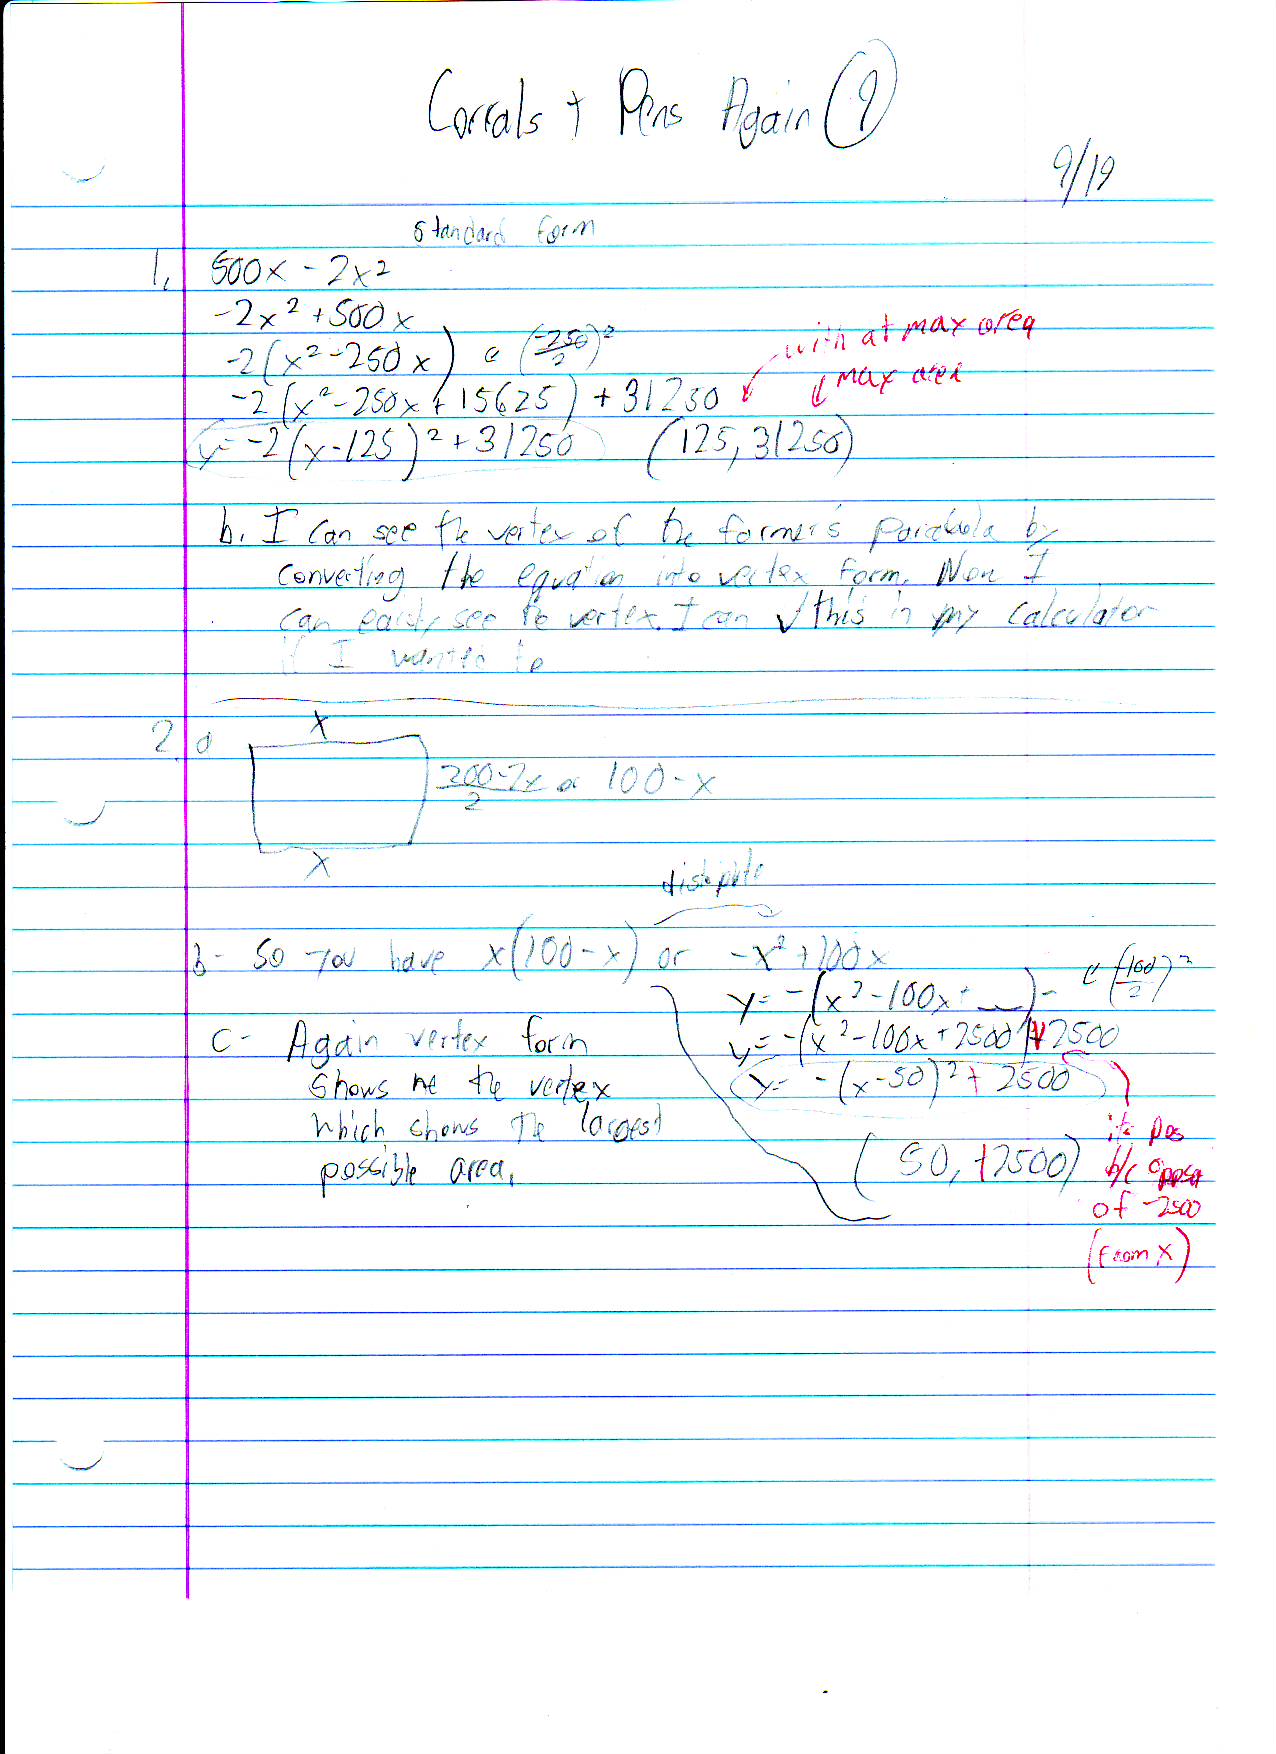 Corrals + Pens Again (9)
9/19
standard form
1. 500x - 2x²
-2x² + 500x
-2(x² - 250x) c (-250/2)²
with at max area
-2(x² - 250x + 15625) + 31250
max area
y = -2(x-125)² + 31250 (125, 31250)
b. I can see the vertex of the farmer's parabola by
converting the equation into vertex form. Now I
can easily see the vertex. I can ✓ this in my calculator
if I wanted to
2. a
x
200-2x/2 or 100-x
x
b- So you have x(100-x) or -x² + 100x
y = -(x² - 100x + __) - c (-100/2)²
c- Again vertex form
y = -(x² - 100x + 2500) + 2500
shows me the vertex
y = -(x-50)² + 2500
which shows the largest
possible area.
(50, +2500)
it's pos
b/c
of -2500
(from x)